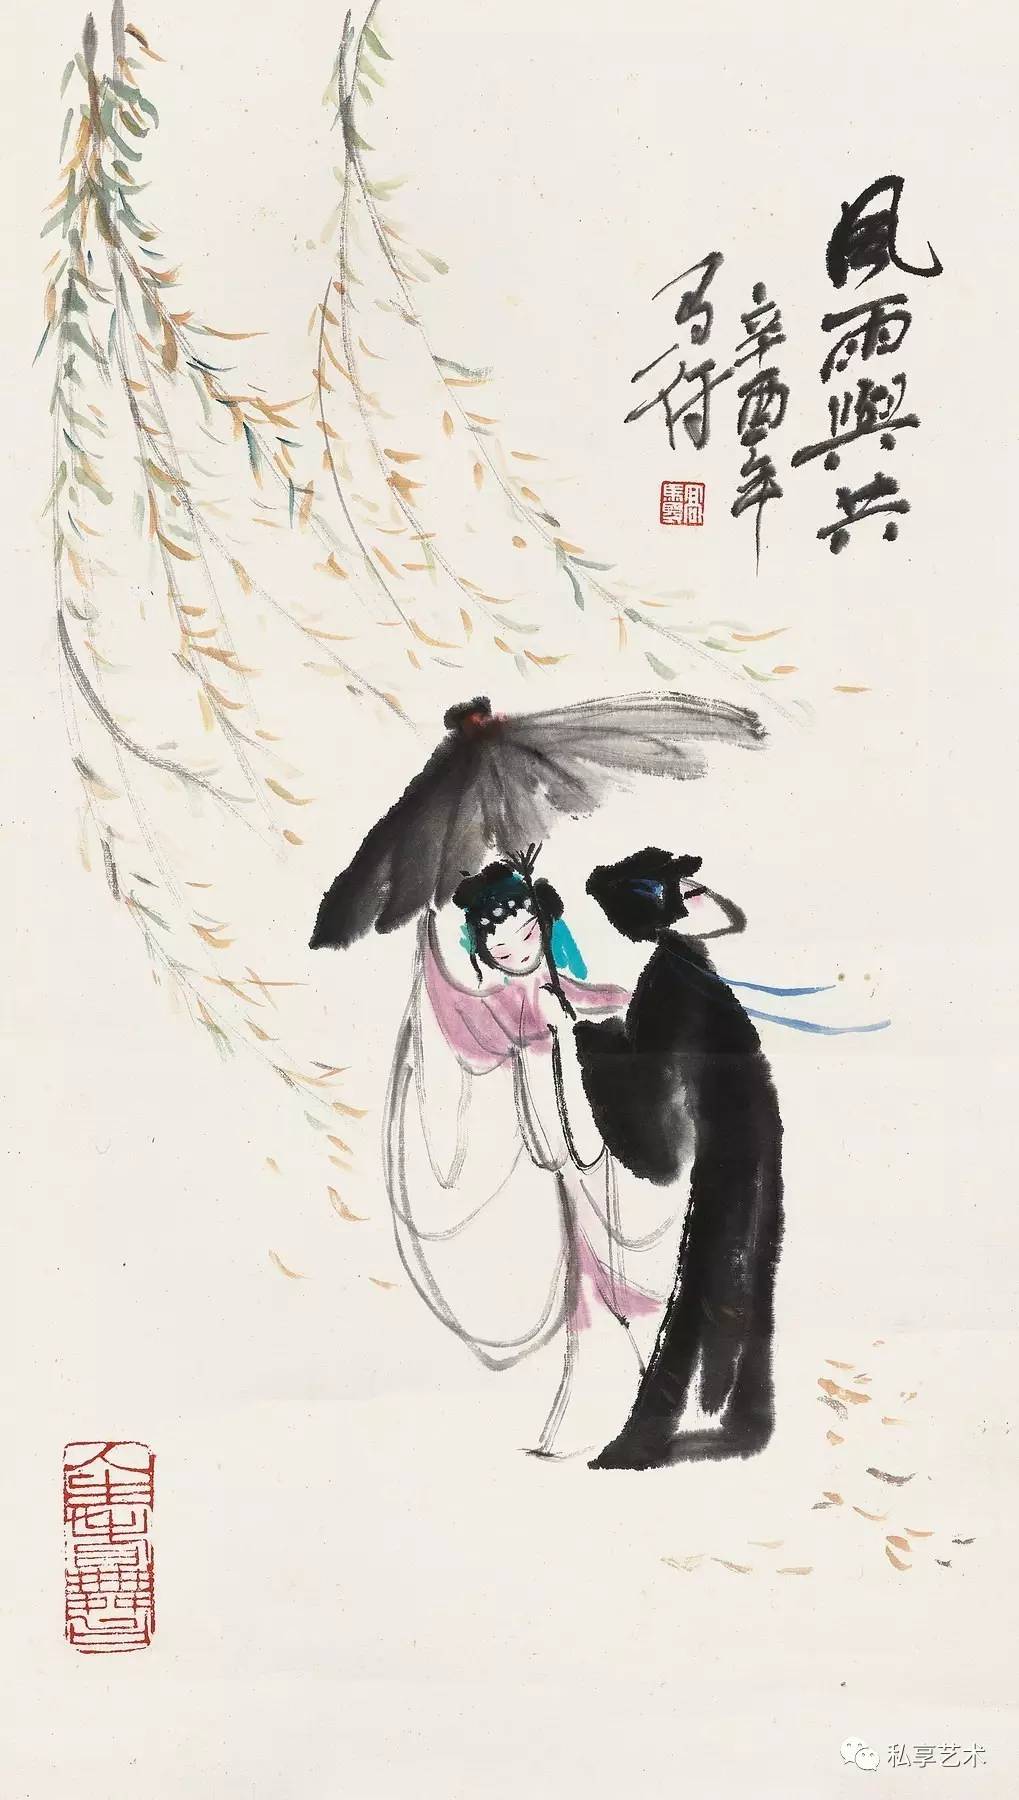 風雨與共
辛酉年
马得
私享艺术